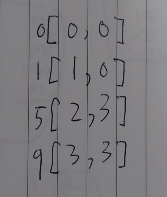 0[0,0]
1[1,0]
5[2,3]
9[3,3]